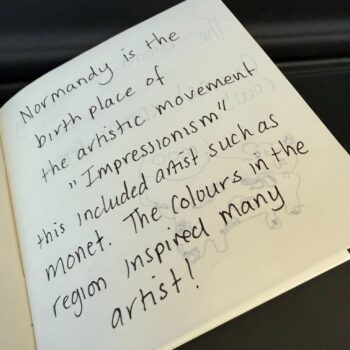 Normandy is the
birth place of
the artistic movement
"Impressionism"
this included artist such as
monet. The colours in the
region inspired many
artist!